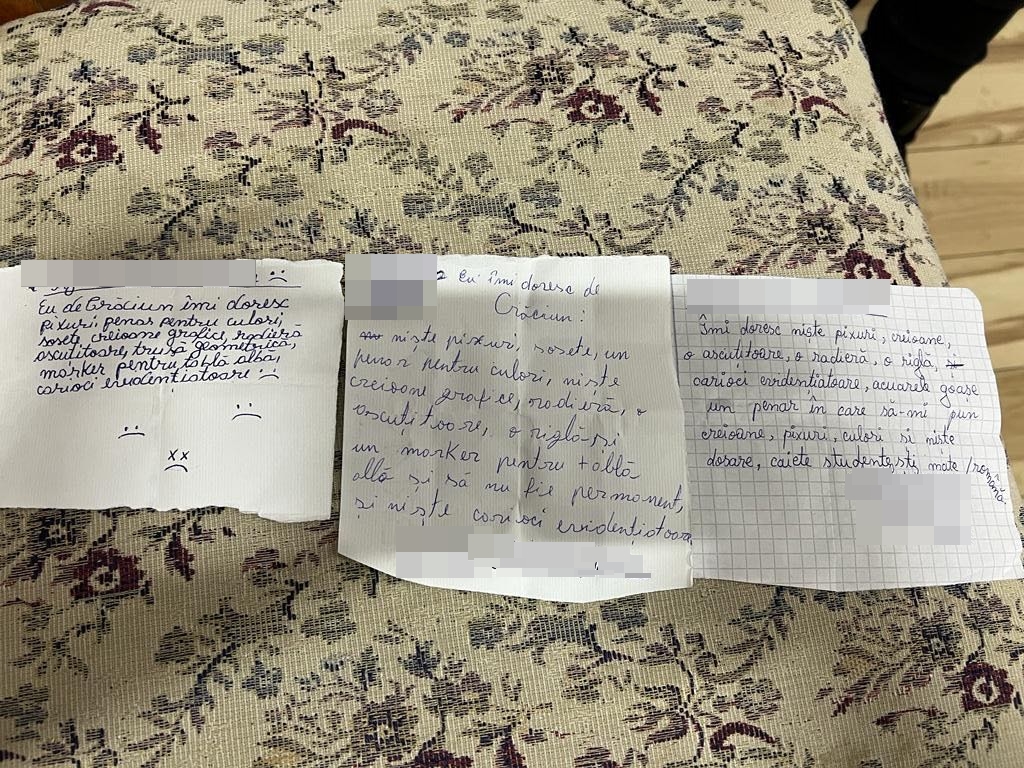 Eu de Crăciun îmi doresc
pixuri, penar pentru culori,
sosete, creioane grafice, radieră
ascutitoare, trusă geometrică,
marker pentru tablă albă,
carioci evidentiatoare
Eu îmi doresc de
Crăciun:
niște pixuri, sosete, un
penar pentru culori, niște
creioane grafice, radieră, o
ascuțitoare, o riglă și
un marker pentru tablă
albă și să nu fie permanent,
și niște carioci evidențiatoare
Îmi doresc niște pixuri, creioane,
o ascuțitoare, o radieră, o riglă,
carioci evidențiatoare, acuarele goașe
un penar în care să-mi pun
creioane, pixuri, culori si niste
dosare, caiete studentești mate/română.